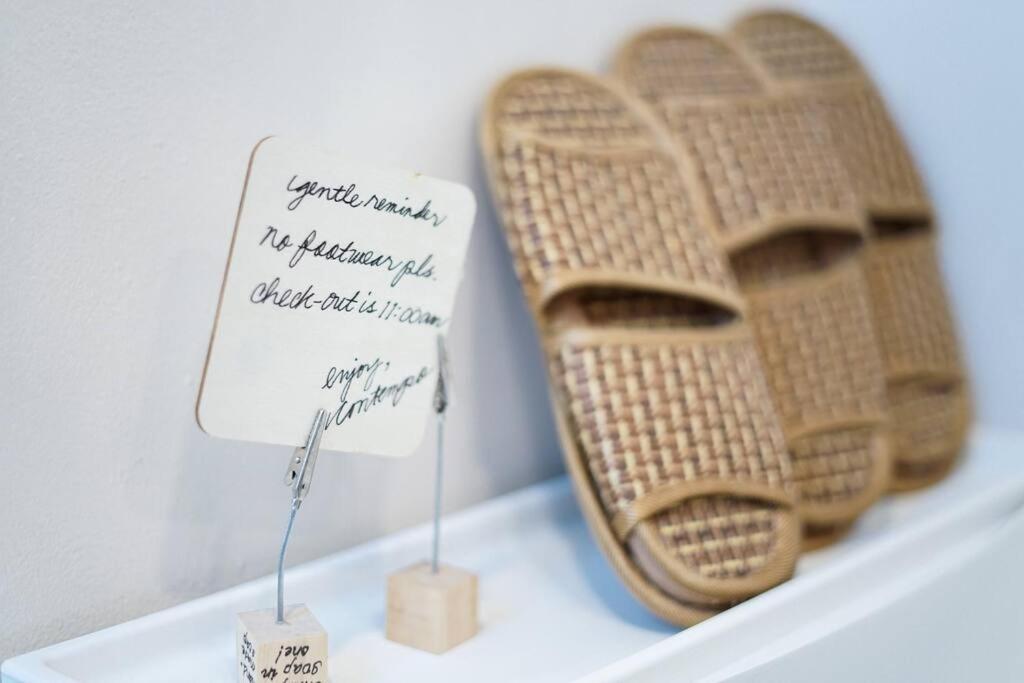 gentle reminder
no footwear pls.
check-out is 11:00am
enjoy,
contempo
soap in
one!